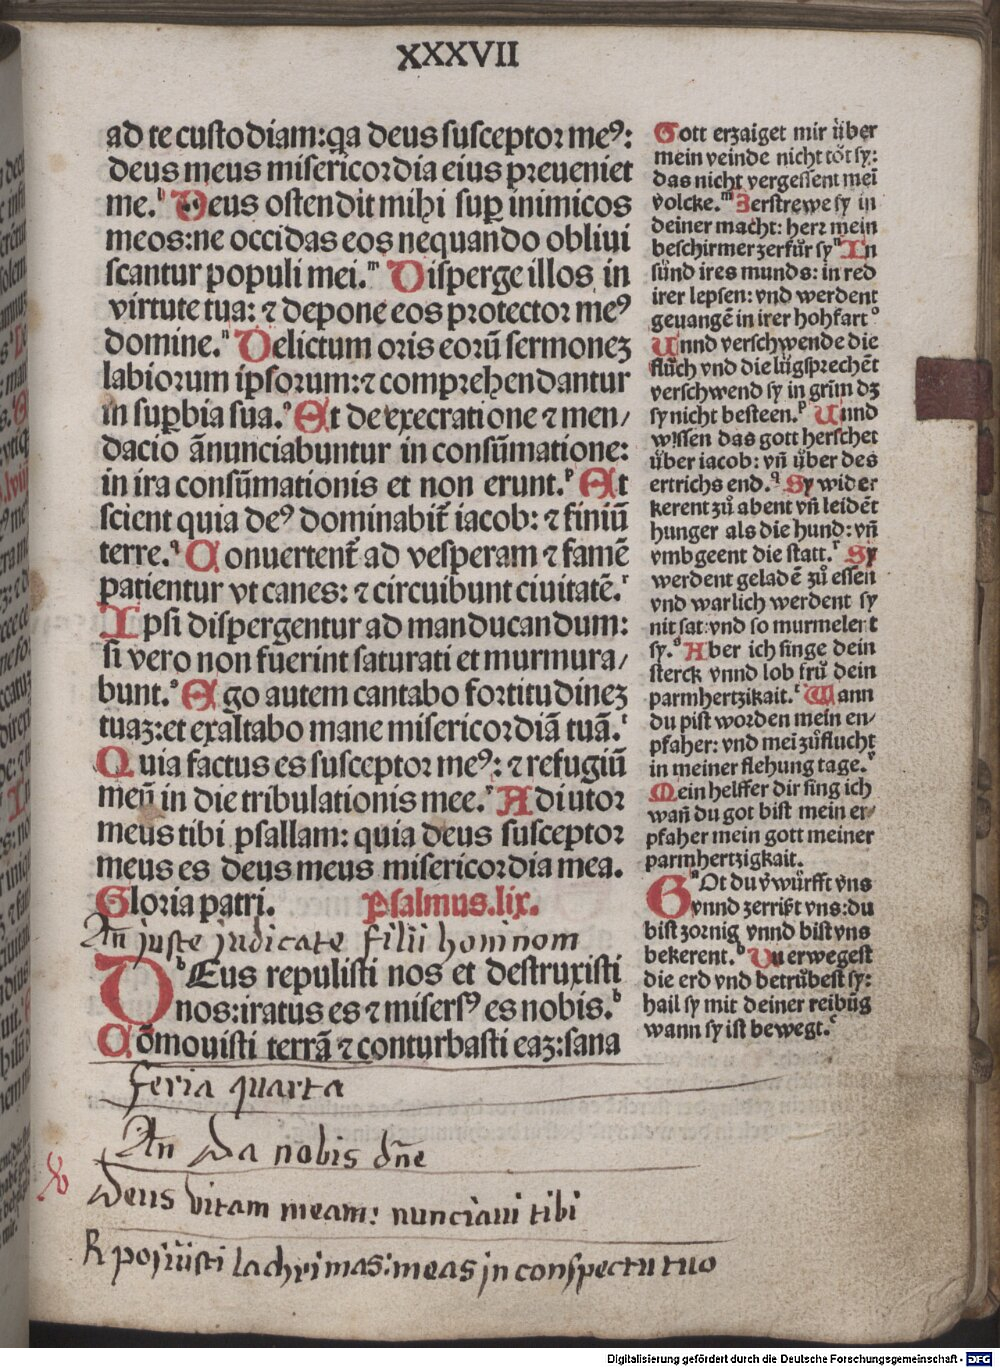 XXXVII
ad te custodiam:qa deus susceptor meꝰ:
deus meus misericordia eius preueniet
me.ˡ Deus ostendit mihi suꝑ inimicos
meos:ne occidas eos nequando obliui
scantur populi mei.ᵐ Disperge illos in
virtute tua: ⁊ depone eos protector meꝰ
domine.ⁿ Delictum oris eorū sermonez
labiorum ipsorum:⁊ comprehendantur
in suꝑbia sua.ᵒ Et de execratione ⁊ men/
dacio ānunciabuntur in consūmatione:
in ira consūmationis et non erunt.ᵖ Et
scient quia deꝰ dominabit̄ iacob: ⁊ finiū
terre.ᑫ Conuertent̄ ad vesperam ⁊ famē
patientur vt canes: ⁊ circuibunt ciuitatē.ʳ
Ipsi dispergentur ad manducandum:
si vero non fuerint saturati et murmura/
bunt.ˢ Ego autem cantabo fortitudinez
tuaz:et exaltabo mane misericordiā tuā.ᵗ
Quia factus es susceptor meꝰ: ⁊ refugiū
meū in die tribulationis mee.ᵛ Adiutor
meus tibi psallam: quia deus susceptor
meus es deus meus misericordia mea.
Gloria patri. Psalmus.lix.
An juste judicate filii hominom
DEus repulisti nos et destruxisti
nos:iratus es ⁊ misersꝰ es nobis.ᵇ
Cōmouisti terrā ⁊ conturbasti eaz:sana
Gott erzaiget mir über
mein veinde nicht töt sy:
das nicht vergessent mei᷑
volcke.ᵐ Zerstrewe sy in
deiner macht: herr mein
beschirmer zerfür syⁿ In
sünd ires munds: in red
irer lepsen: vnd werdent
geuangē in irer hohfartᵒ
Unnd verschwende die
flůch vnd die lügsprechēt
verschwend sy in grim̄ dz
sy nicht besteen.ᵖ Unnd
wissen das gott herschet
über iacob: vn̄ über des
ertrichs end.ᑫ Sy wider
kerent zů abent vn̄ leidēt
hunger als die hund: vn̄
vmbgeent die statt.ʳ Sy
werdent geladē zů essen
vnd warlich werdent sy
nit sat:vnd so murmelent
sy.ˢ Aber ich singe dein
sterck vnnd lob frů dein
parmhertzikait.ᵗ Wann
du pist worden mein en/
pfaher: vnd mei᷑ zůflucht
in meiner flehung tage.ᵛ
Mein helffer dir sing ich
wañ du got bist mein er/
pfaher mein gott meiner
parmhertzigkait.
GOt du v̊würfft vns
vnnd zerrißt vns:du
bist zornig vnnd bist vns
bekerent.ᵇ Du erwegest
die erd vnd betrübest sy:
hail sy mit deiner reibūg
wann sy ist bewegt.ᶜ
feria quarta
An Da nobis dn̄e
Deus vitam meam: nunciaui tibi
R posuisti lachrimas:meas jn conspectu tuo
Digitalisierung gefördert durch die Deutsche Forschungsgemeinschaft - DFG